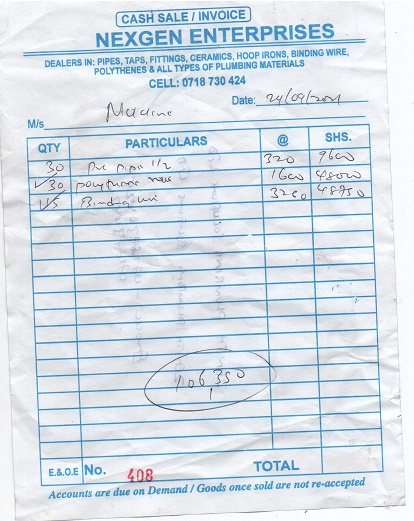 CASH SALE / INVOICE
NEXGEN ENTERPRISES
DEALERS IN: PIPES, TAPS, FITTINGS, CERAMICS, HOOP IRONS, BINDING WIRE,
POLYTHENES & ALL TYPES OF PLUMBING MATERIALS
CELL: 0718 730 424
Date: 24/09/2021
M/s
QTY PARTICULARS @ SHS.
30 Pvc pipes 1 1/2 320 9600
30 polythene 1600 48000
15 Binding wire 48750
106,350
E.&O.E No. 408 TOTAL
Accounts are due on Demand / Goods once sold are not re-accepted